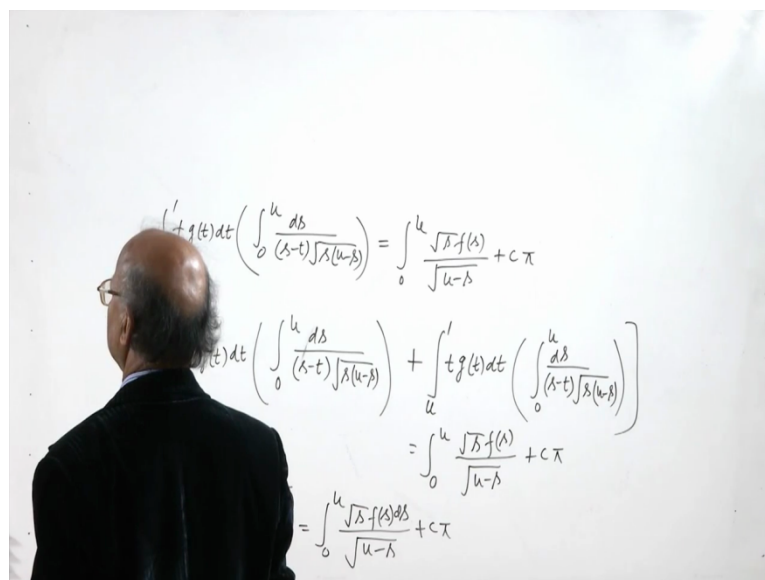 ∫' t g(t) dt ( ∫₀ᵘ ds / ((s-t)√s(u-s)) ) = ∫₀ᵘ √s f(s) / √u-s + cπ
g(t) dt ( ∫₀ᵘ ds / ((s-t)√s(u-s)) ) + ∫ᵤ' t g(t) dt ( ∫₀ᵘ ds / ((s-t)√s(u-s)) ) ]
= ∫₀ᵘ √s f(s) / √u-s + cπ
= ∫₀ᵘ √s f(s) ds / √u-s + cπ